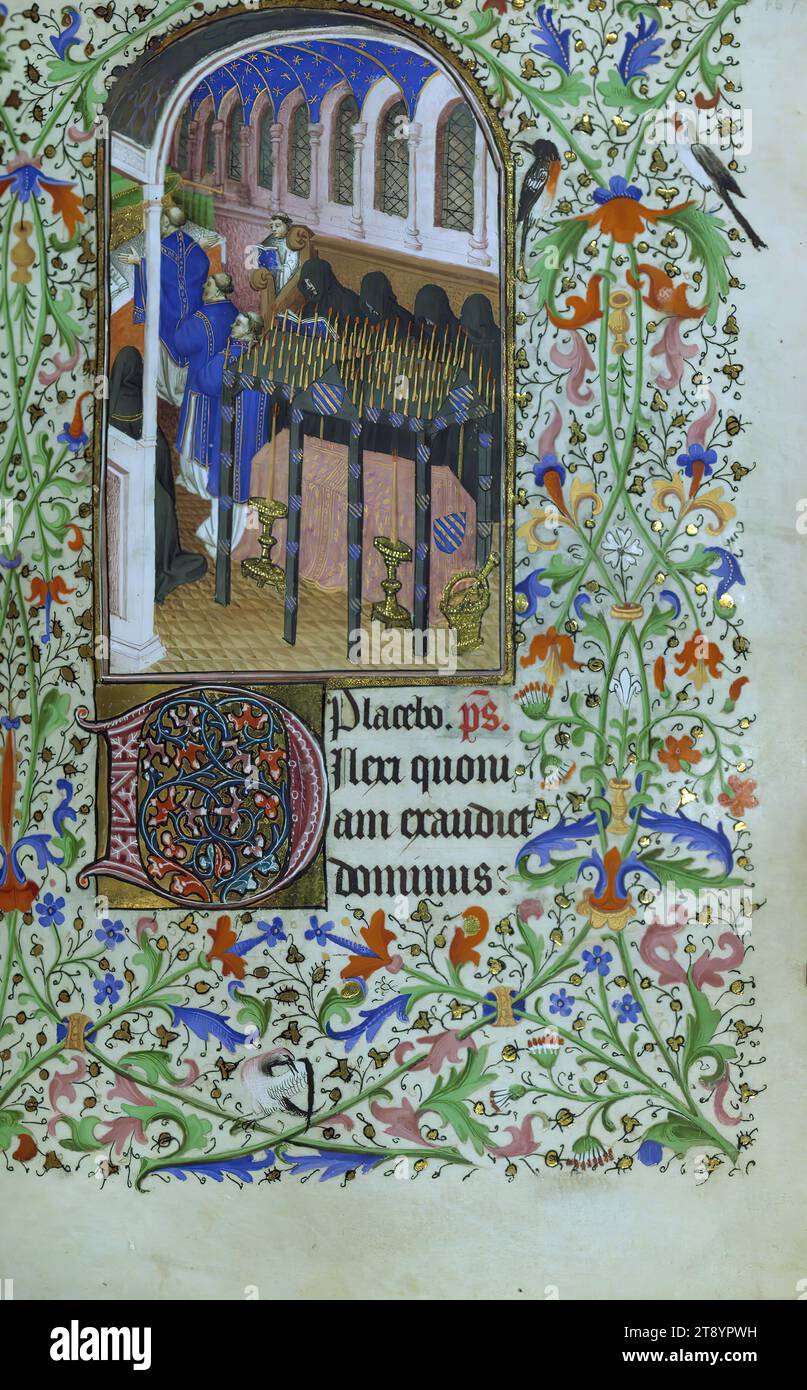 Placebo. ps̄.
Dilexi quoni
am exaudiet
dominus:
alamy
Image ID: 2T8YPWH
www.alamy.com